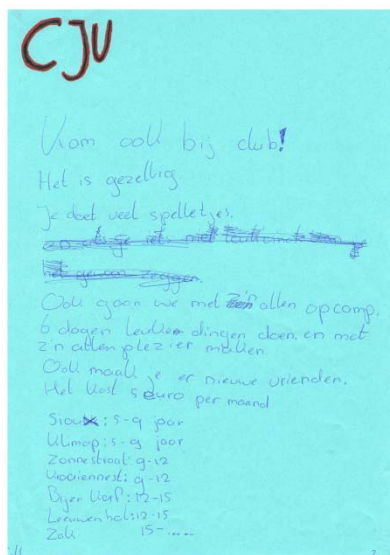 CJV
Kom ook bij club!
Het is gezellig.
Je doet veel spelletjes.
Ook gaan we met z'n allen op camp,
6 dagen leuke dingen doen en met
z'n allen plezier maken
Ook maak je er nieuwe vrienden.
Het kost 5 euro per maand
Sioux: 5-9 jaar
Klimop: 5-9 jaar
Zonnestraal: 9-12
Kraaiennest: 9-12
Bijenkorf: 12-15
Leeuwenhol: 12-15
Zolt 15-.....